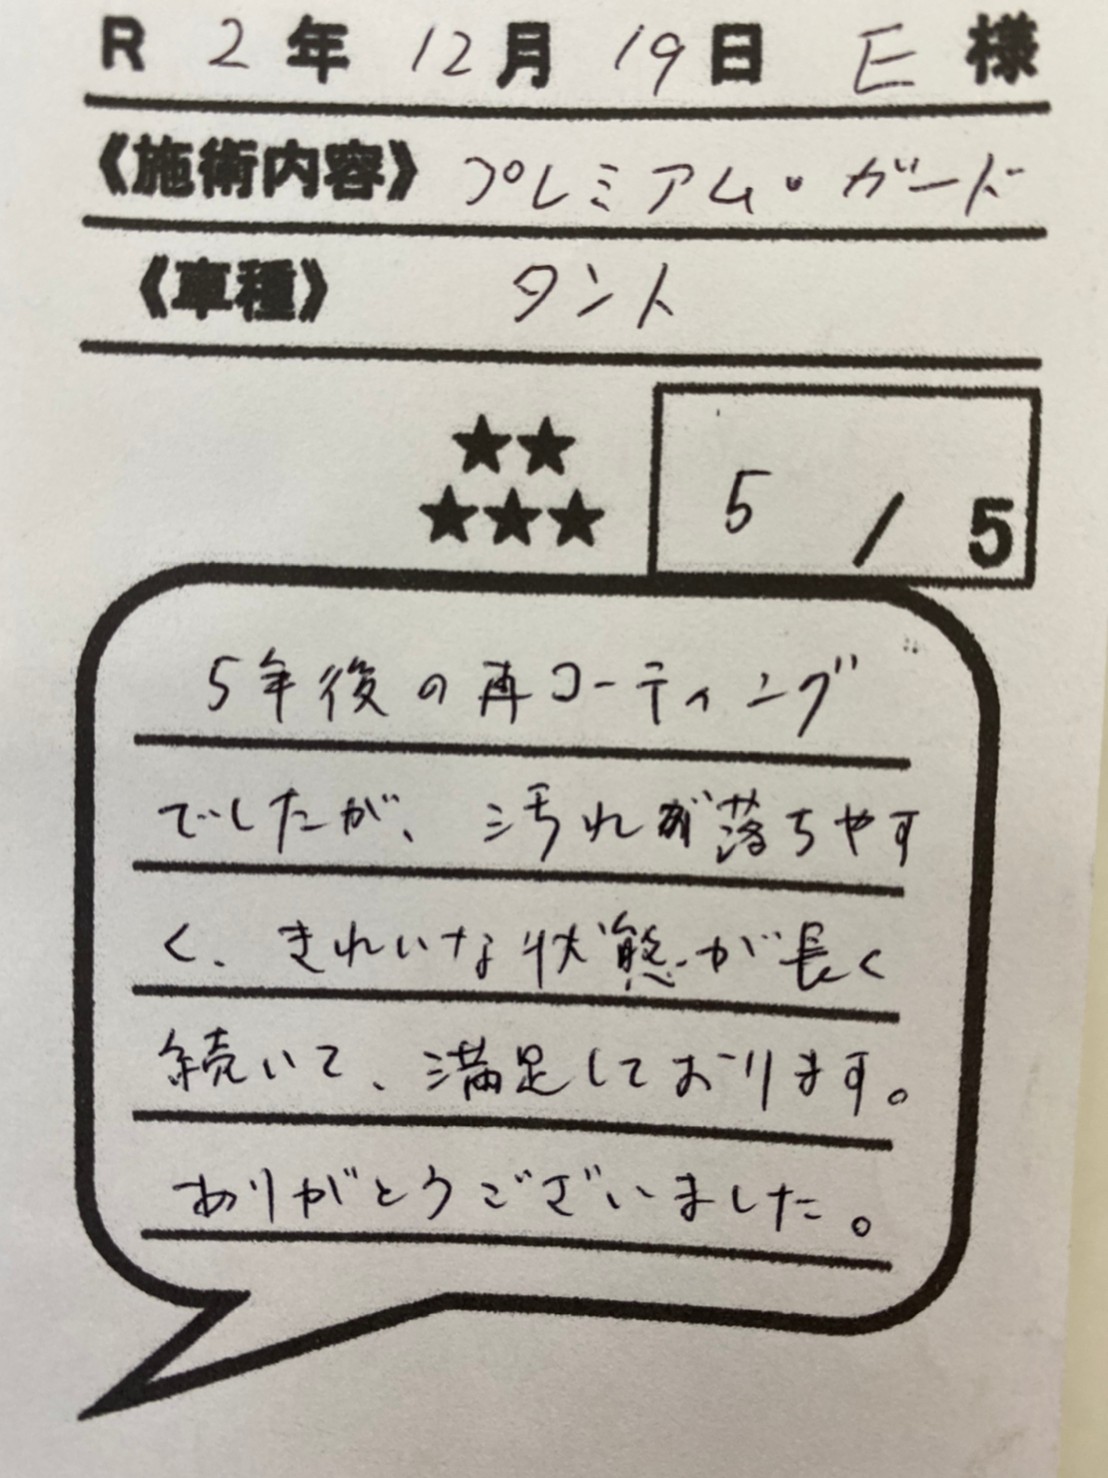 R 2年 12月 19日 E 様
《施術内容》 プレミアム・ガード
《車種》 タント
★★
★★★
5 / 5
5年後の再コーティング
でしたが、汚れが落ちやす
く、きれいな状態が長く
続いて、満足しております。
ありがとうございました。